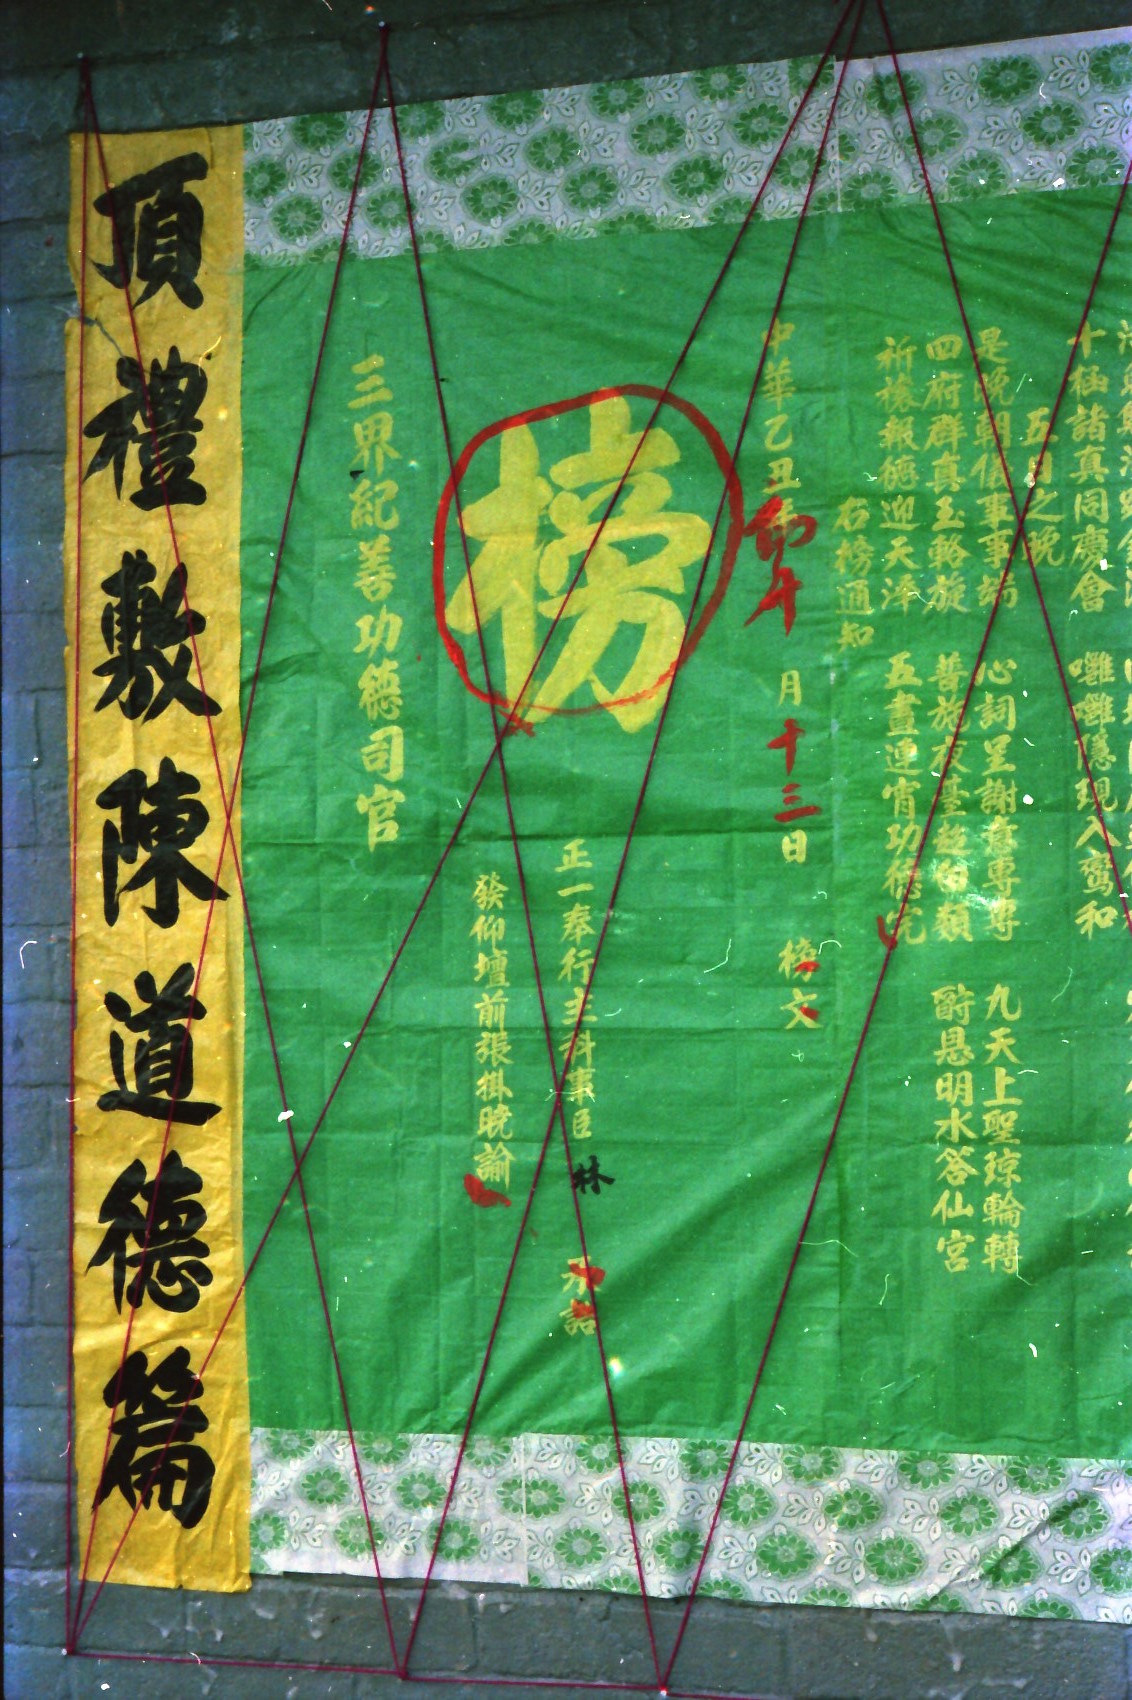 十極諸真同慶會 囉囉隱現入鸞和
五月之晚
是晚朝儀事事端 心詞呈謝意專專 九天上聖琼輪轉
四府群真玉軫旋 普施夜臺超白類 酧恩明水答仙宮
祈禳報德迎天泽 五晝連宵功德完
右榜通知
中華乙丑年 月十三日 榜文
榜
正一奉行主科事臣 林 承誥
發仰壇前張掛曉諭
三界紀善功德司官
頂禮敷陳道德篇